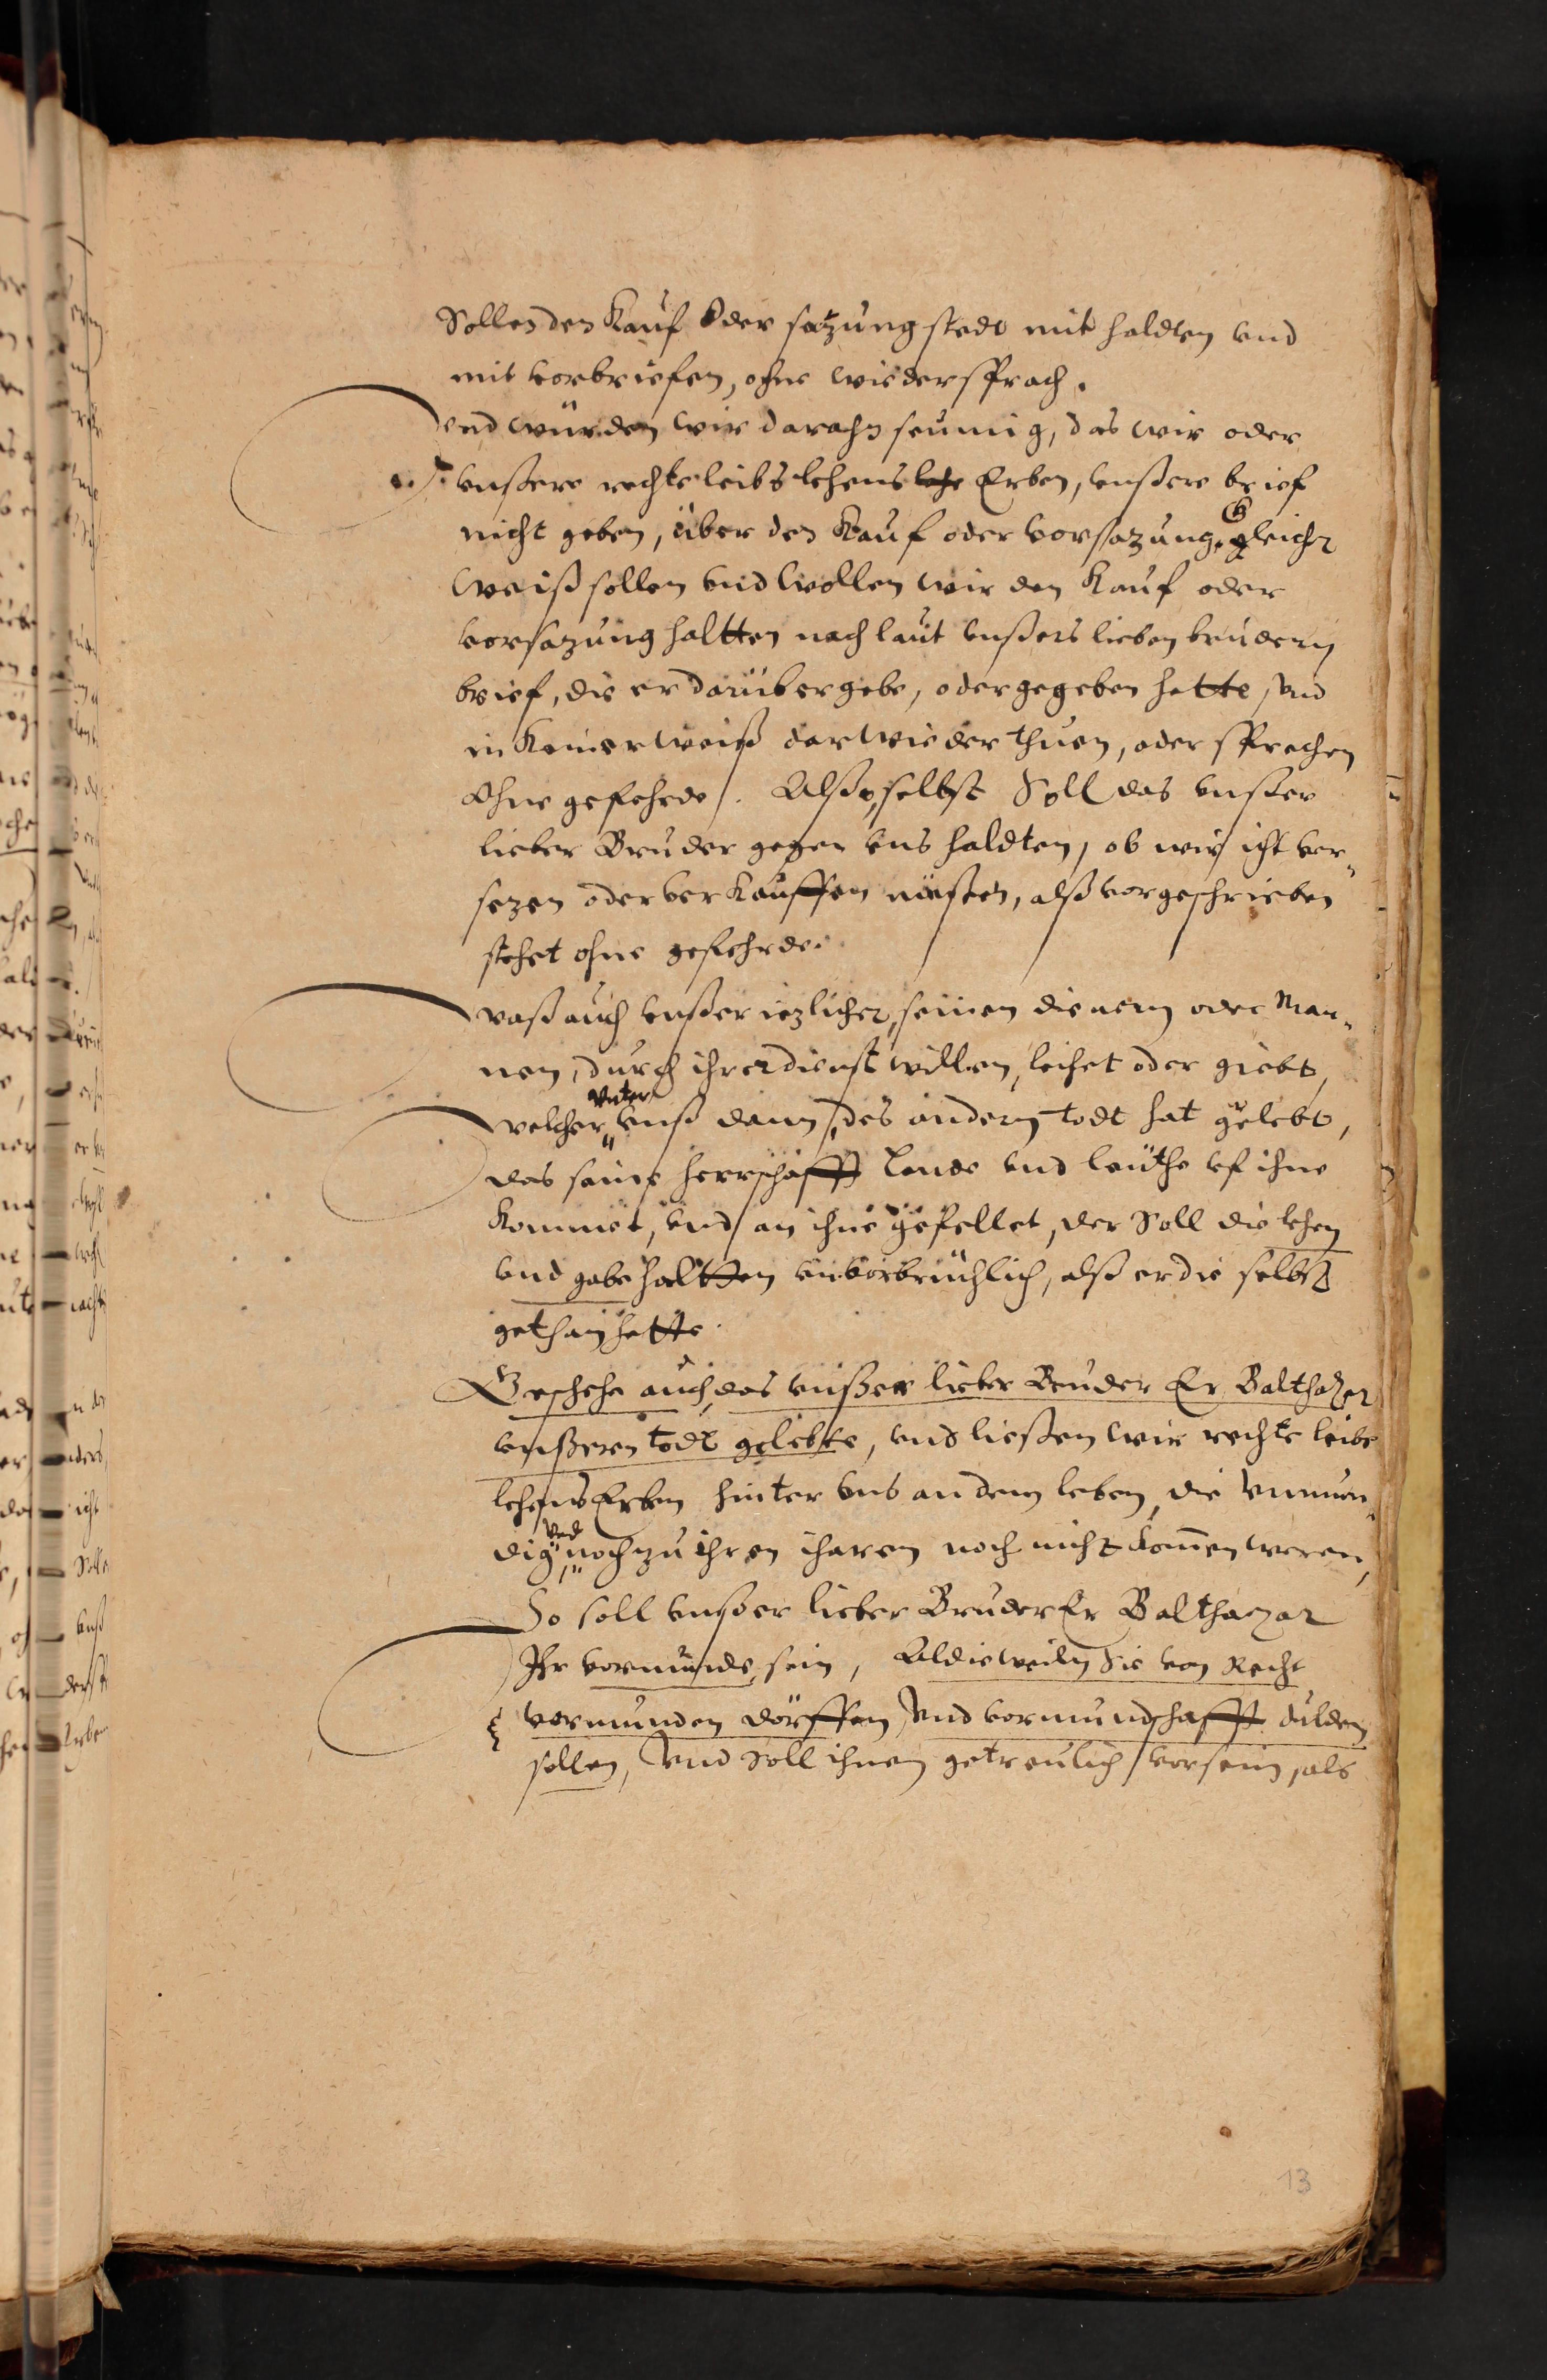 Sollen den Kauf oder satzung stedt mit haldten vnd
mit vorbriefen, ohne wiedersprach.
Vnd würden wir darahn seumig, das wir oder
vnßere rechte leibs lehens lehe Erben, vnßere brief
nicht geben, über den Kauf oder vorsazung. gleicher
weiß sollen vnd wollen wir den Kauf oder
vorsazung haltten nach laut vnßers lieben brudern
brief, die er darüber gebe, oder gegeben hette, vnd
in Keinerweiß darwieder thuen, oder sprechen
Ohne gefehrde. Alßo, selbst Soll das vnßer
lieber Bruder gegen vns haldten, ob wir icht ver„
sezen oder verkauffen müsten, alß vorgeschrieben
stehet ohne gefehrde.
waß auch vnßer iezlicher, seinen dienern oder Man„
nen, durch ihrer dienst willen, leihet oder giebt,
welcher vnter vnß dann, des andern todt hat gelebt,
das seine herrschafft lande vnd leuthe vf ihne
Kommet, vnd an ihne gefellet, der Soll die lehen
vnd gabe haltten vnvorbrüchlich, alß er die selbst
gethan hette.
Geschehe auch, das vnßer lieber Bruder Er Balthazer
vnßeren todt gelebte, vnd ließen wir rechte leibs
lehens Erben hinter vns an dem leben, die vnmun„
dig vnd noch zu ihren iharen noch nicht kommen weren,
So soll vnßer lieber Bruder Er Balthazar
Ihr vormunde, sein, Aldieweiln Sie von Recht
vormunden dörffen, Vnd vormundschafft dulden
sollen, Vnd soll ihnen getreulich vorsein, als
13